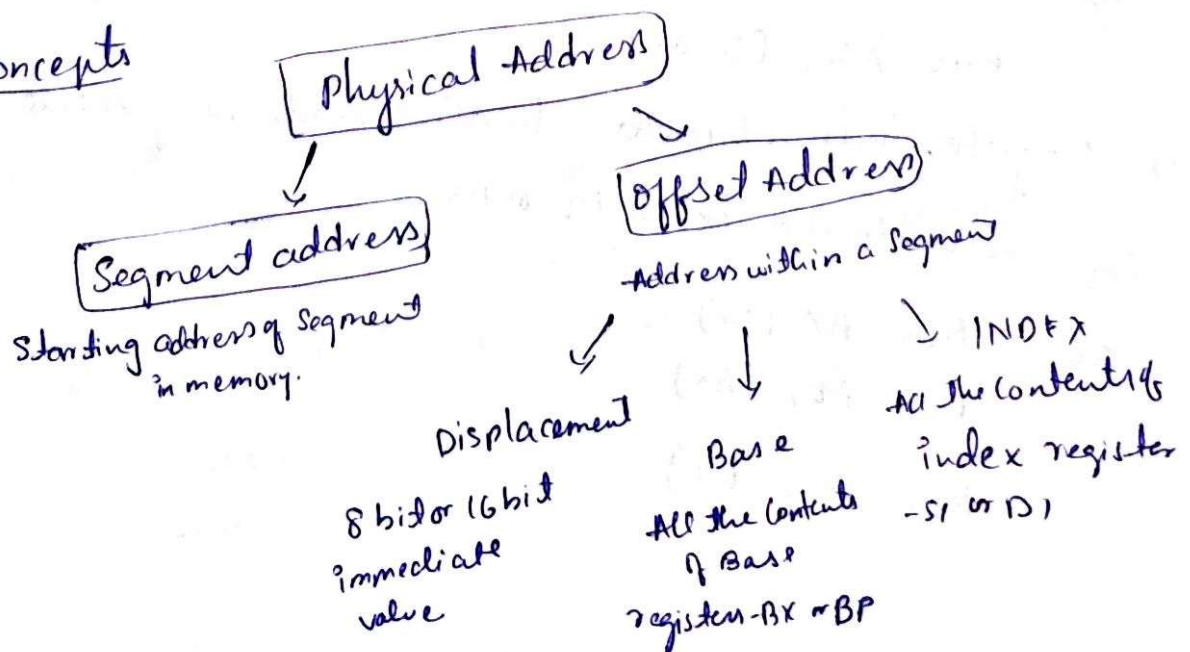 oncepts
Physical Address
Segment address
Starting address of Segment
in memory.
Offset Address
Address within a Segment
Displacement
8 bit or 16 bit
immediate
value
Base
All the Contents
of Base
registers-BX or BP
INDEX
All the Contents of
index register
-SI or DI